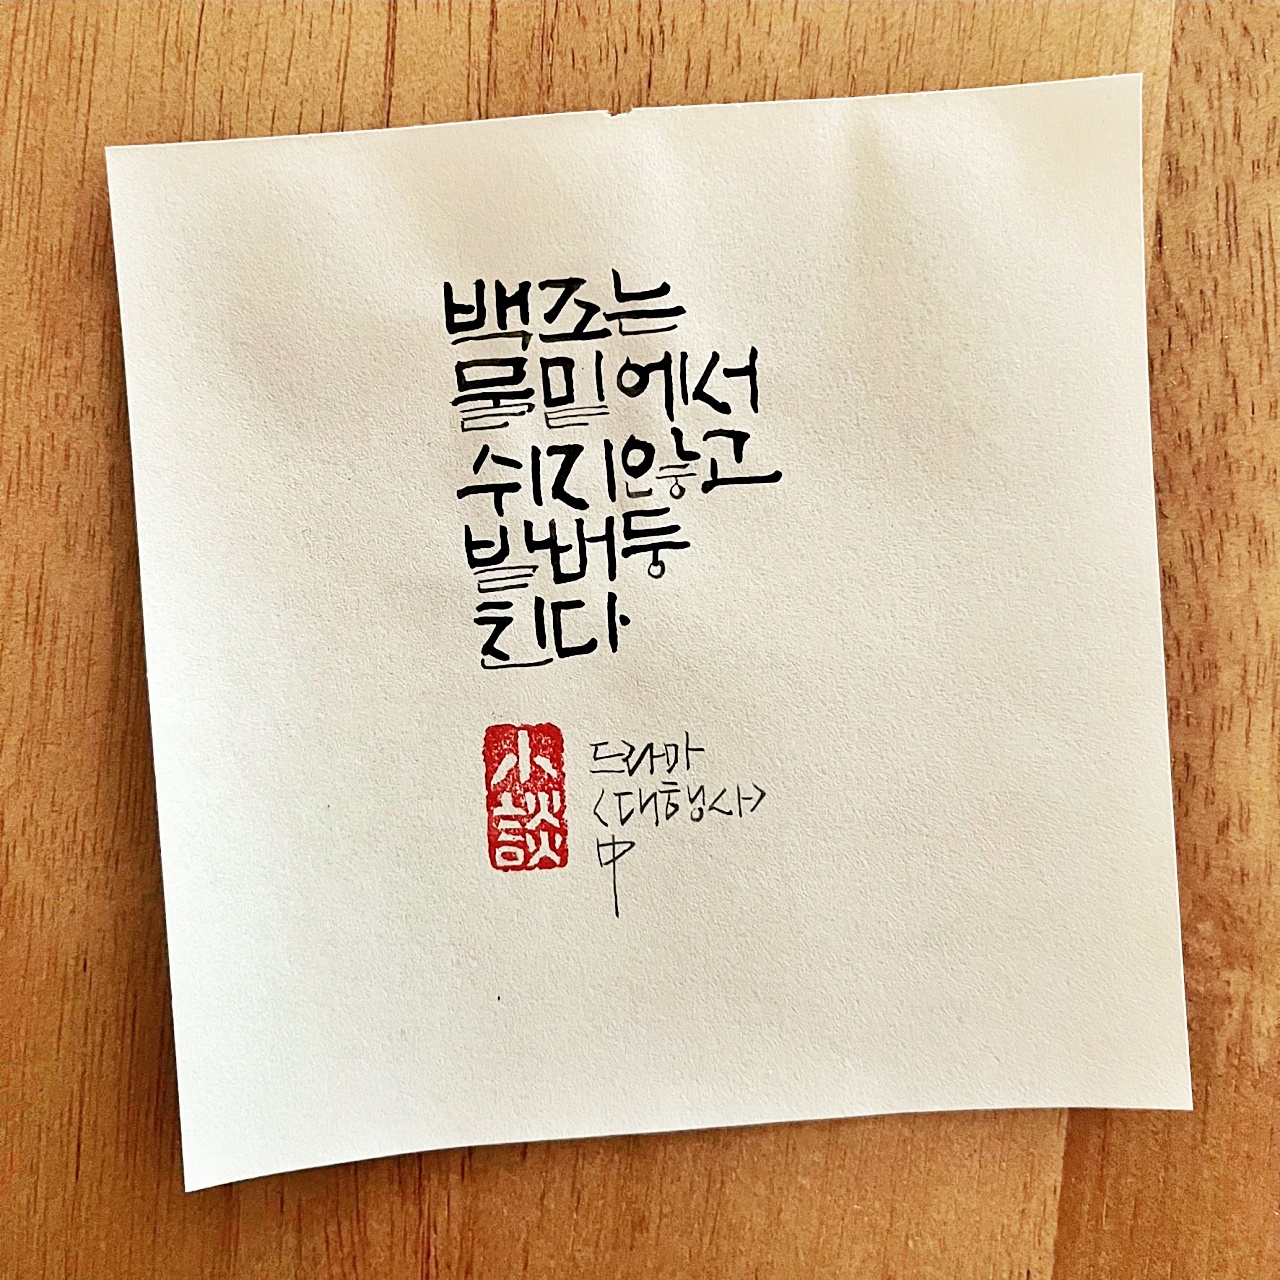 백조는
물밑에서
쉬지않고
발버둥
친다
小談
드라마
<대행사>
中